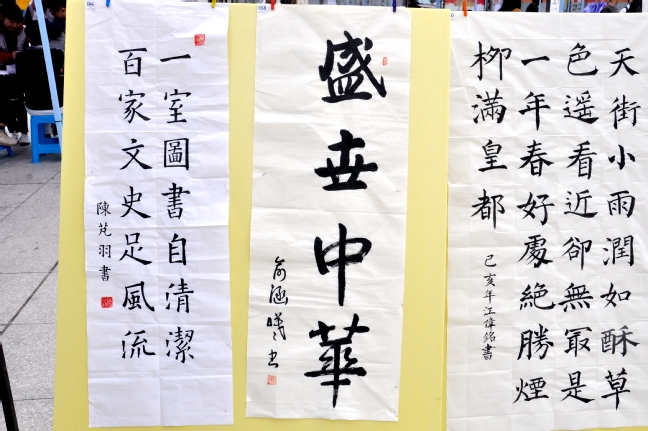 一室圖書自清潔
百家文史足風流
陳芃羽書
盛世中華
俞涵曦书
天街小雨潤如酥草
色遥看近卻無最是
一年春好處絕勝煙
柳滿皇都
己亥年江偉銘書